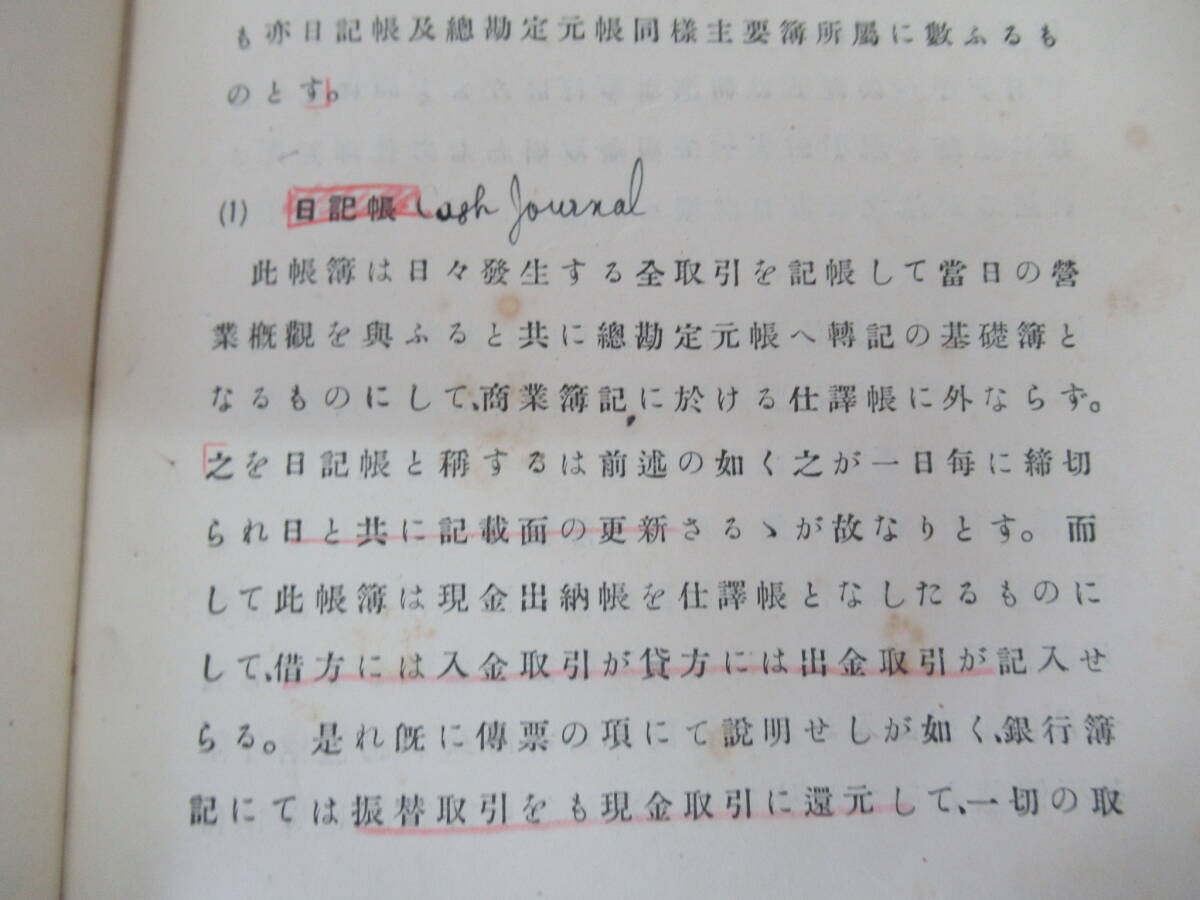 も亦日記帳及總勘定元帳同樣主要簿所屬に數ふるも
のとす。
(1) 日記帳 Cash Journal
此帳簿は日々發生する全取引を記帳して當日の營
業槪觀を與ふると共に總勘定元帳へ轉記の基礎簿と
なるものにして、商業簿記に於ける仕譯帳に外ならず。
之を日記帳と稱するは前述の如く之が一日每に締切
られ日と共に記載面の更新さるゝが故なりとす。而
して此帳簿は現金出納帳を仕譯帳となしたるものに
して、借方には入金取引が貸方には出金取引が記入せ
らる。是れ旣に傳票の項にて說明せしが如く、銀行簿
記にては振替取引をも現金取引に還元して、一切の取